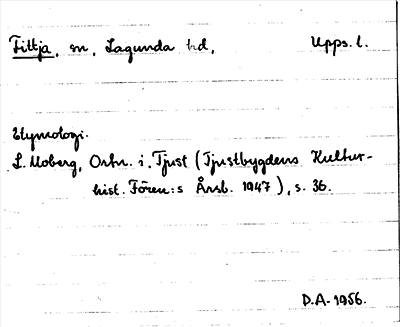 Fittja, sn, Lagunda hd, Upps. l.
Etymologi.
L. Moberg, Ortn. i Tjust (Tjustbygdens Kultur-
hist. Fören:s Årsb. 1947), s. 36.
D.A. 1956.